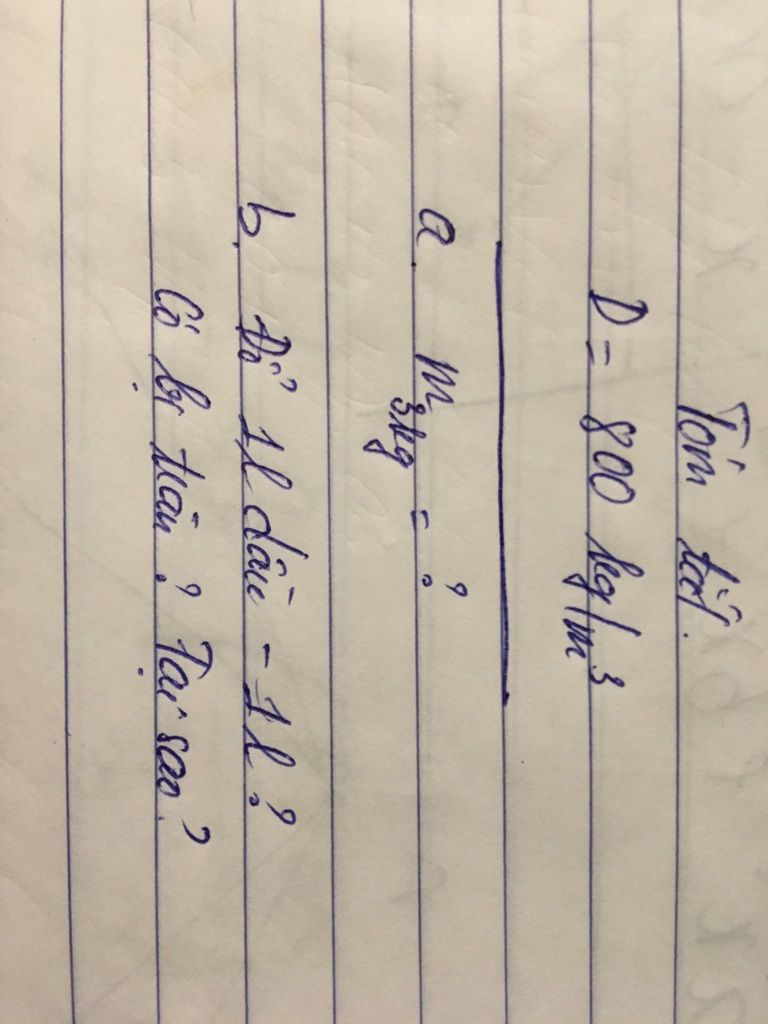 Tóm tắt.
D = 800 kg/m³
a. m 3kg = ?
b. Đổ 1l dầu - 1l ?
Có bị tràn ? Tại sao ?